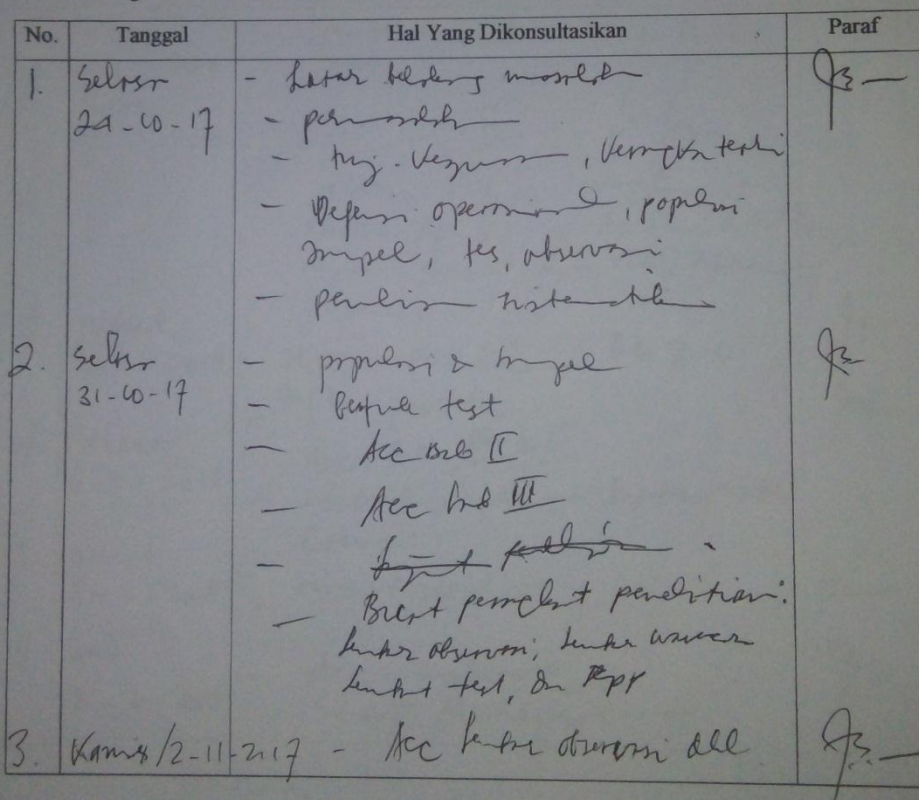 No. Tanggal Hal Yang Dikonsultasikan Paraf
1. Selasa - Latar belakang masalah
24-10-17 - permasalahan
- tuj. kegunaan, kerangka teori
- Defenisi operasional, populasi
sampel, tes, observasi
- penulisan sistematika
2. Selasa - populasi & sampel
31-10-17 - test
- Acc Bab II
- Acc bab III
-
- Buat perangkat penelitian:
lembar observasi, lembar
lembar test, dan Rpp
3. Kamis/2-11-2017 - Acc lembar observasi dll